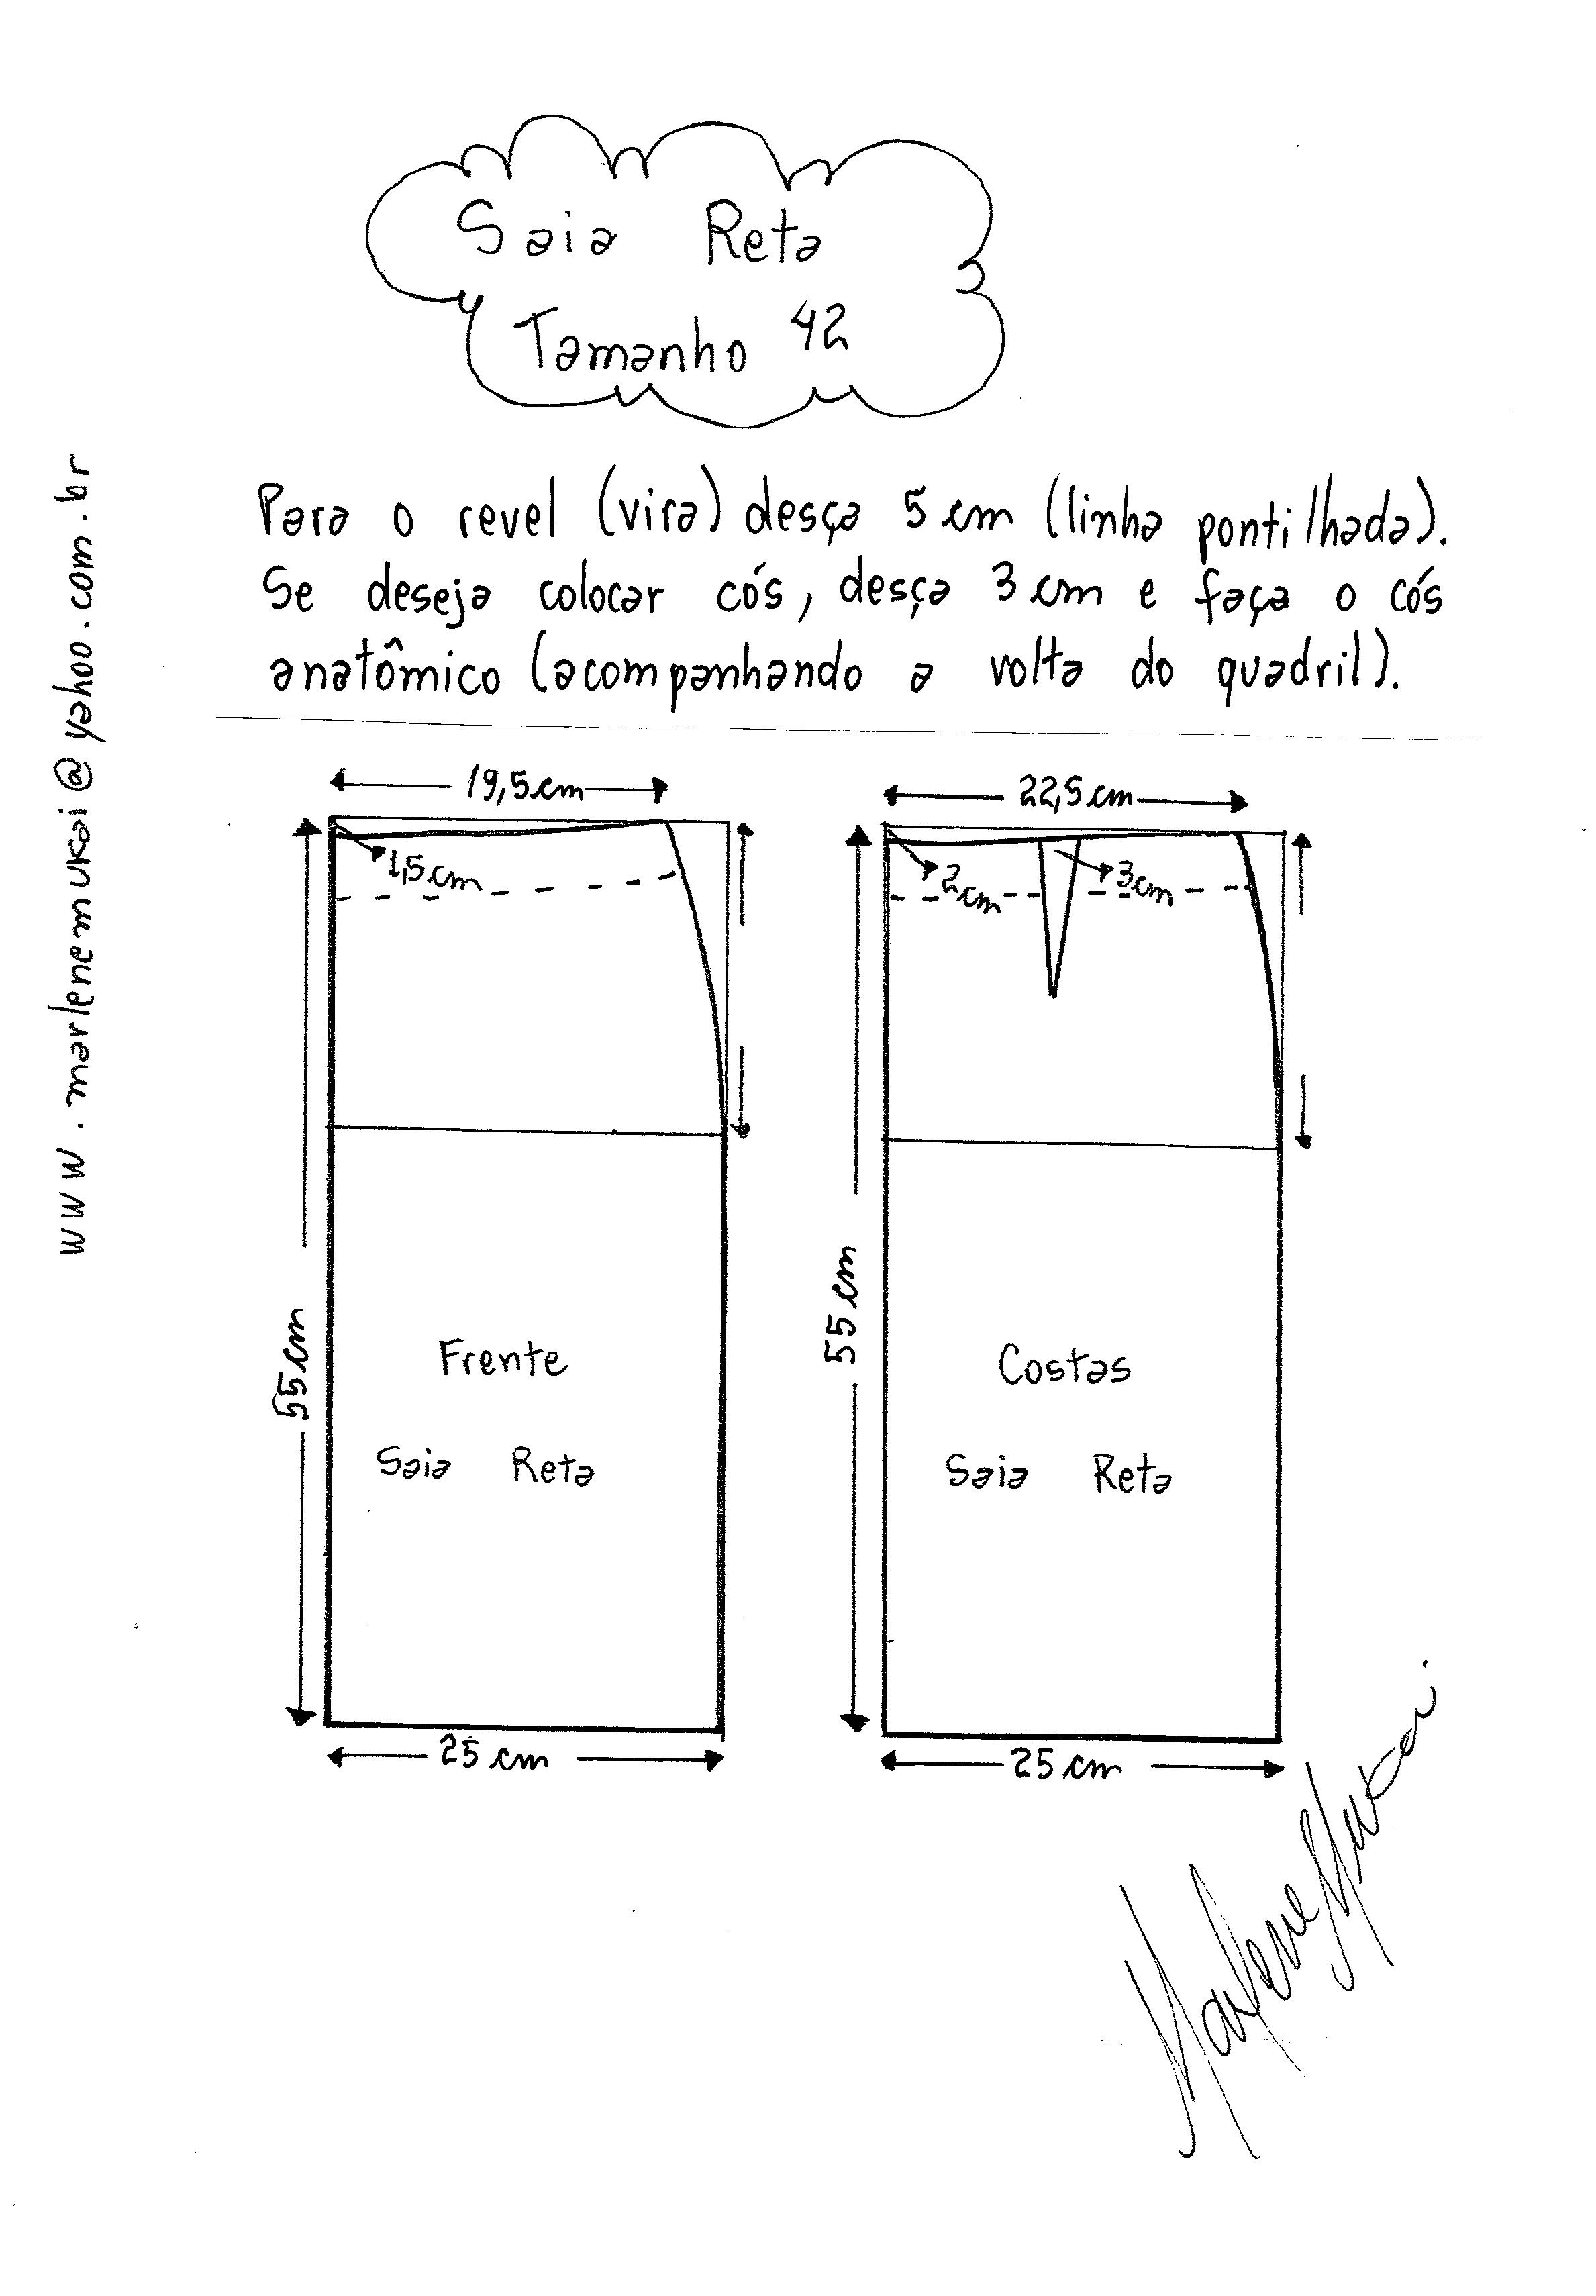 Saia Reta
Tamanho 42
Para o revel (vira) desça 5 cm (linha pontilhada).
Se deseja colocar cós, desça 3 cm e faça o cós
anatômico (acompanhando a volta do quadril).
www.marlenemukai@yahoo.com.br
19,5 cm
1,5 cm
55 cm
Frente
Saia Reta
25 cm
22,5 cm
2 cm
3 cm
55 cm
Costas
Saia Reta
25 cm
Marlene Mukai.